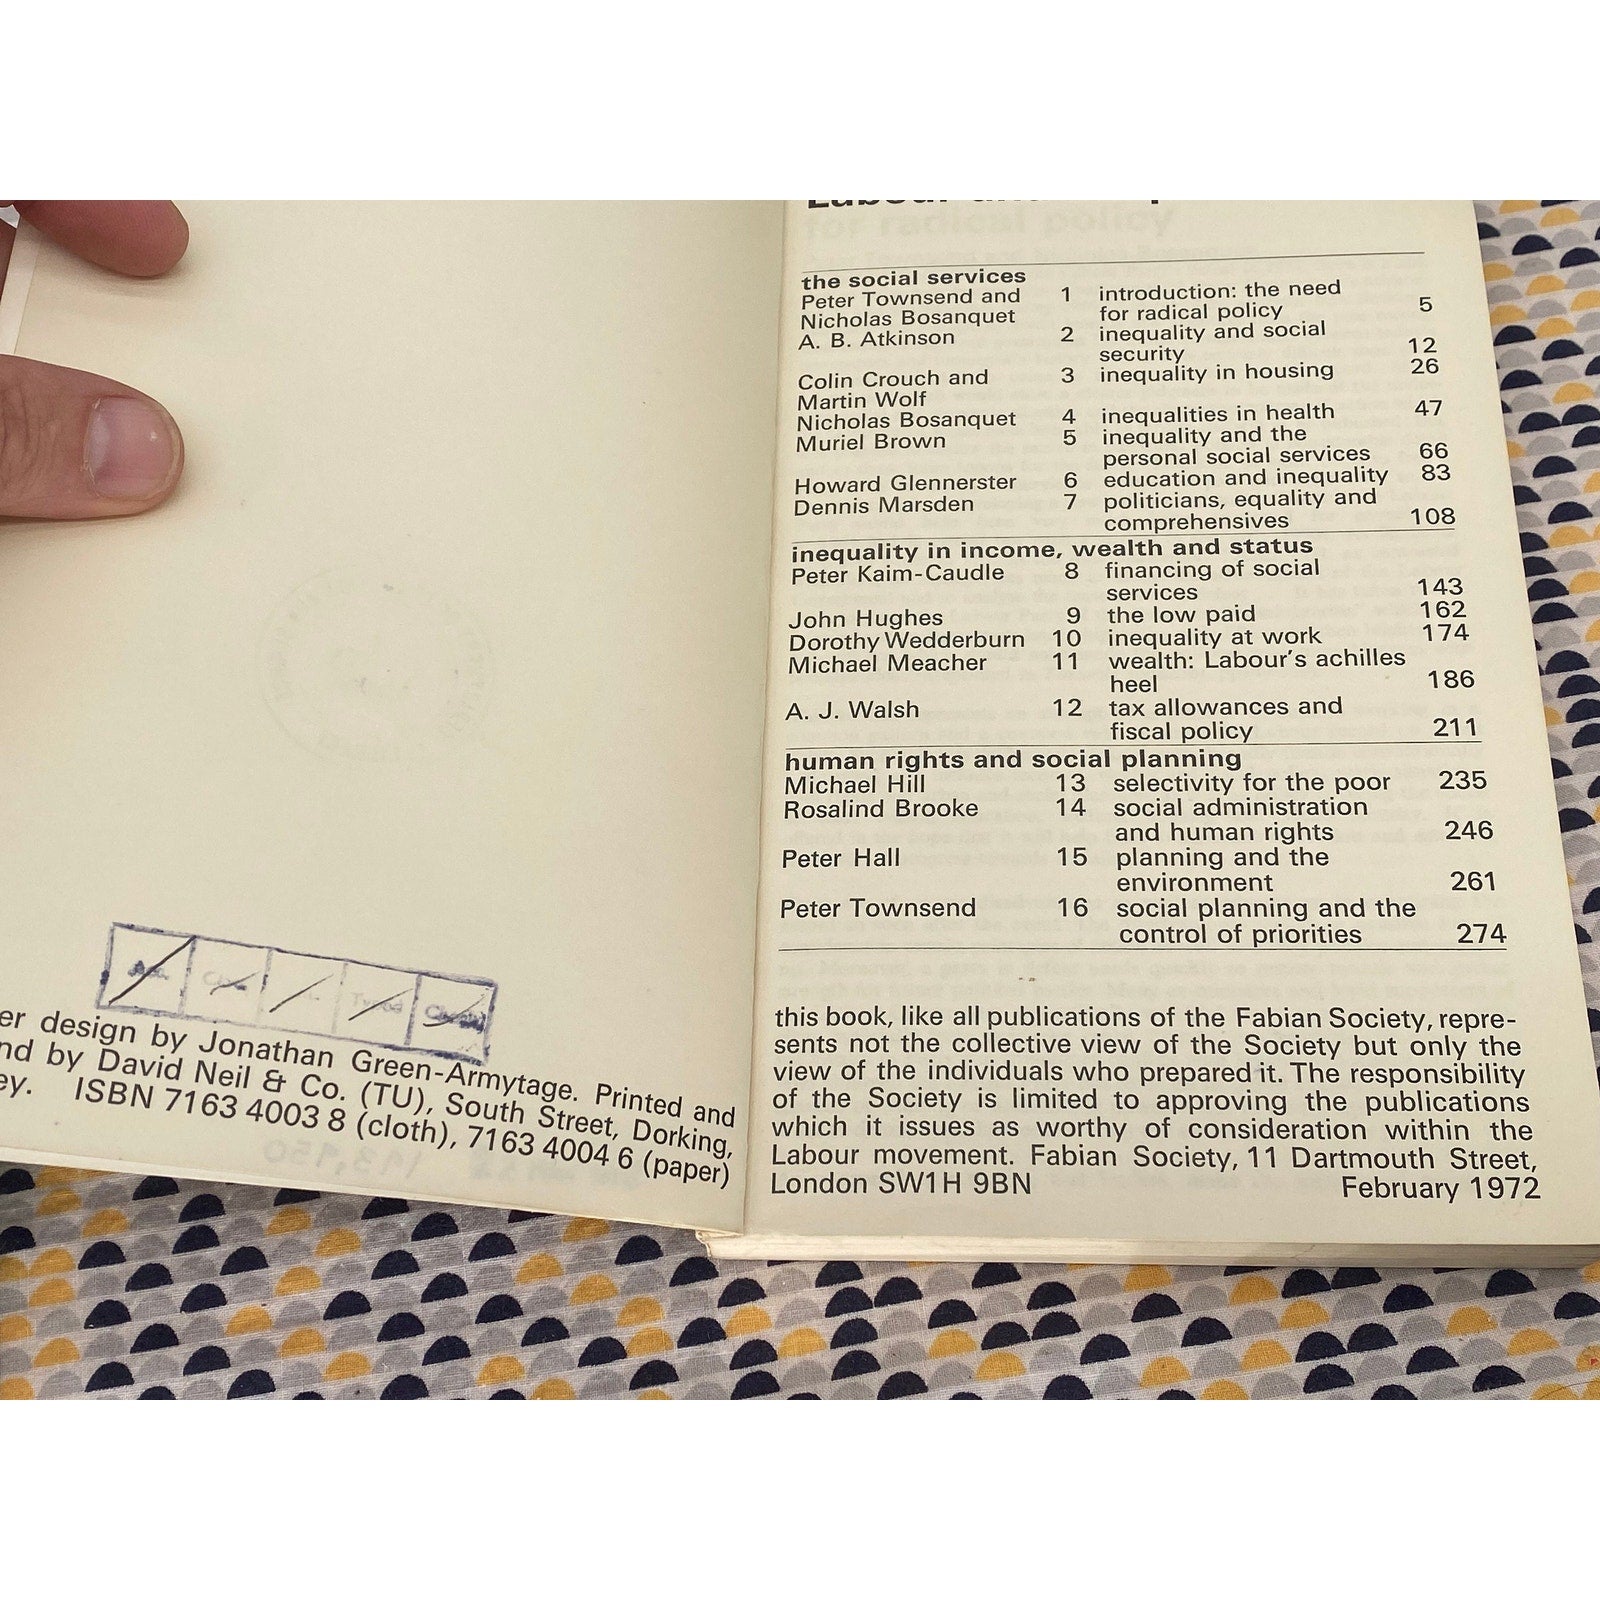 er design by Jonathan Green-Armytage. Printed and
nd by David Neil & Co. (TU), South Street, Dorking,
ey. ISBN 7163 4003 8 (cloth), 7163 4004 6 (paper)
Labour and
for radical policy
the social services
Peter Townsend and 1 introduction: the need
Nicholas Bosanquet for radical policy 5
A. B. Atkinson 2 inequality and social
security 12
Colin Crouch and 3 inequality in housing 26
Martin Wolf
Nicholas Bosanquet 4 inequalities in health 47
Muriel Brown 5 inequality and the
personal social services 66
Howard Glennerster 6 education and inequality 83
Dennis Marsden 7 politicians, equality and
comprehensives 108
inequality in income, wealth and status
Peter Kaim-Caudle 8 financing of social
services 143
John Hughes 9 the low paid 162
Dorothy Wedderburn 10 inequality at work 174
Michael Meacher 11 wealth: Labour's achilles
heel 186
A. J. Walsh 12 tax allowances and
fiscal policy 211
human rights and social planning
Michael Hill 13 selectivity for the poor 235
Rosalind Brooke 14 social administration
and human rights 246
Peter Hall 15 planning and the
environment 261
Peter Townsend 16 social planning and the
control of priorities 274
this book, like all publications of the Fabian Society, repre-
sents not the collective view of the Society but only the
view of the individuals who prepared it. The responsibility
of the Society is limited to approving the publications
which it issues as worthy of consideration within the
Labour movement. Fabian Society, 11 Dartmouth Street,
London SW1H 9BN February 1972